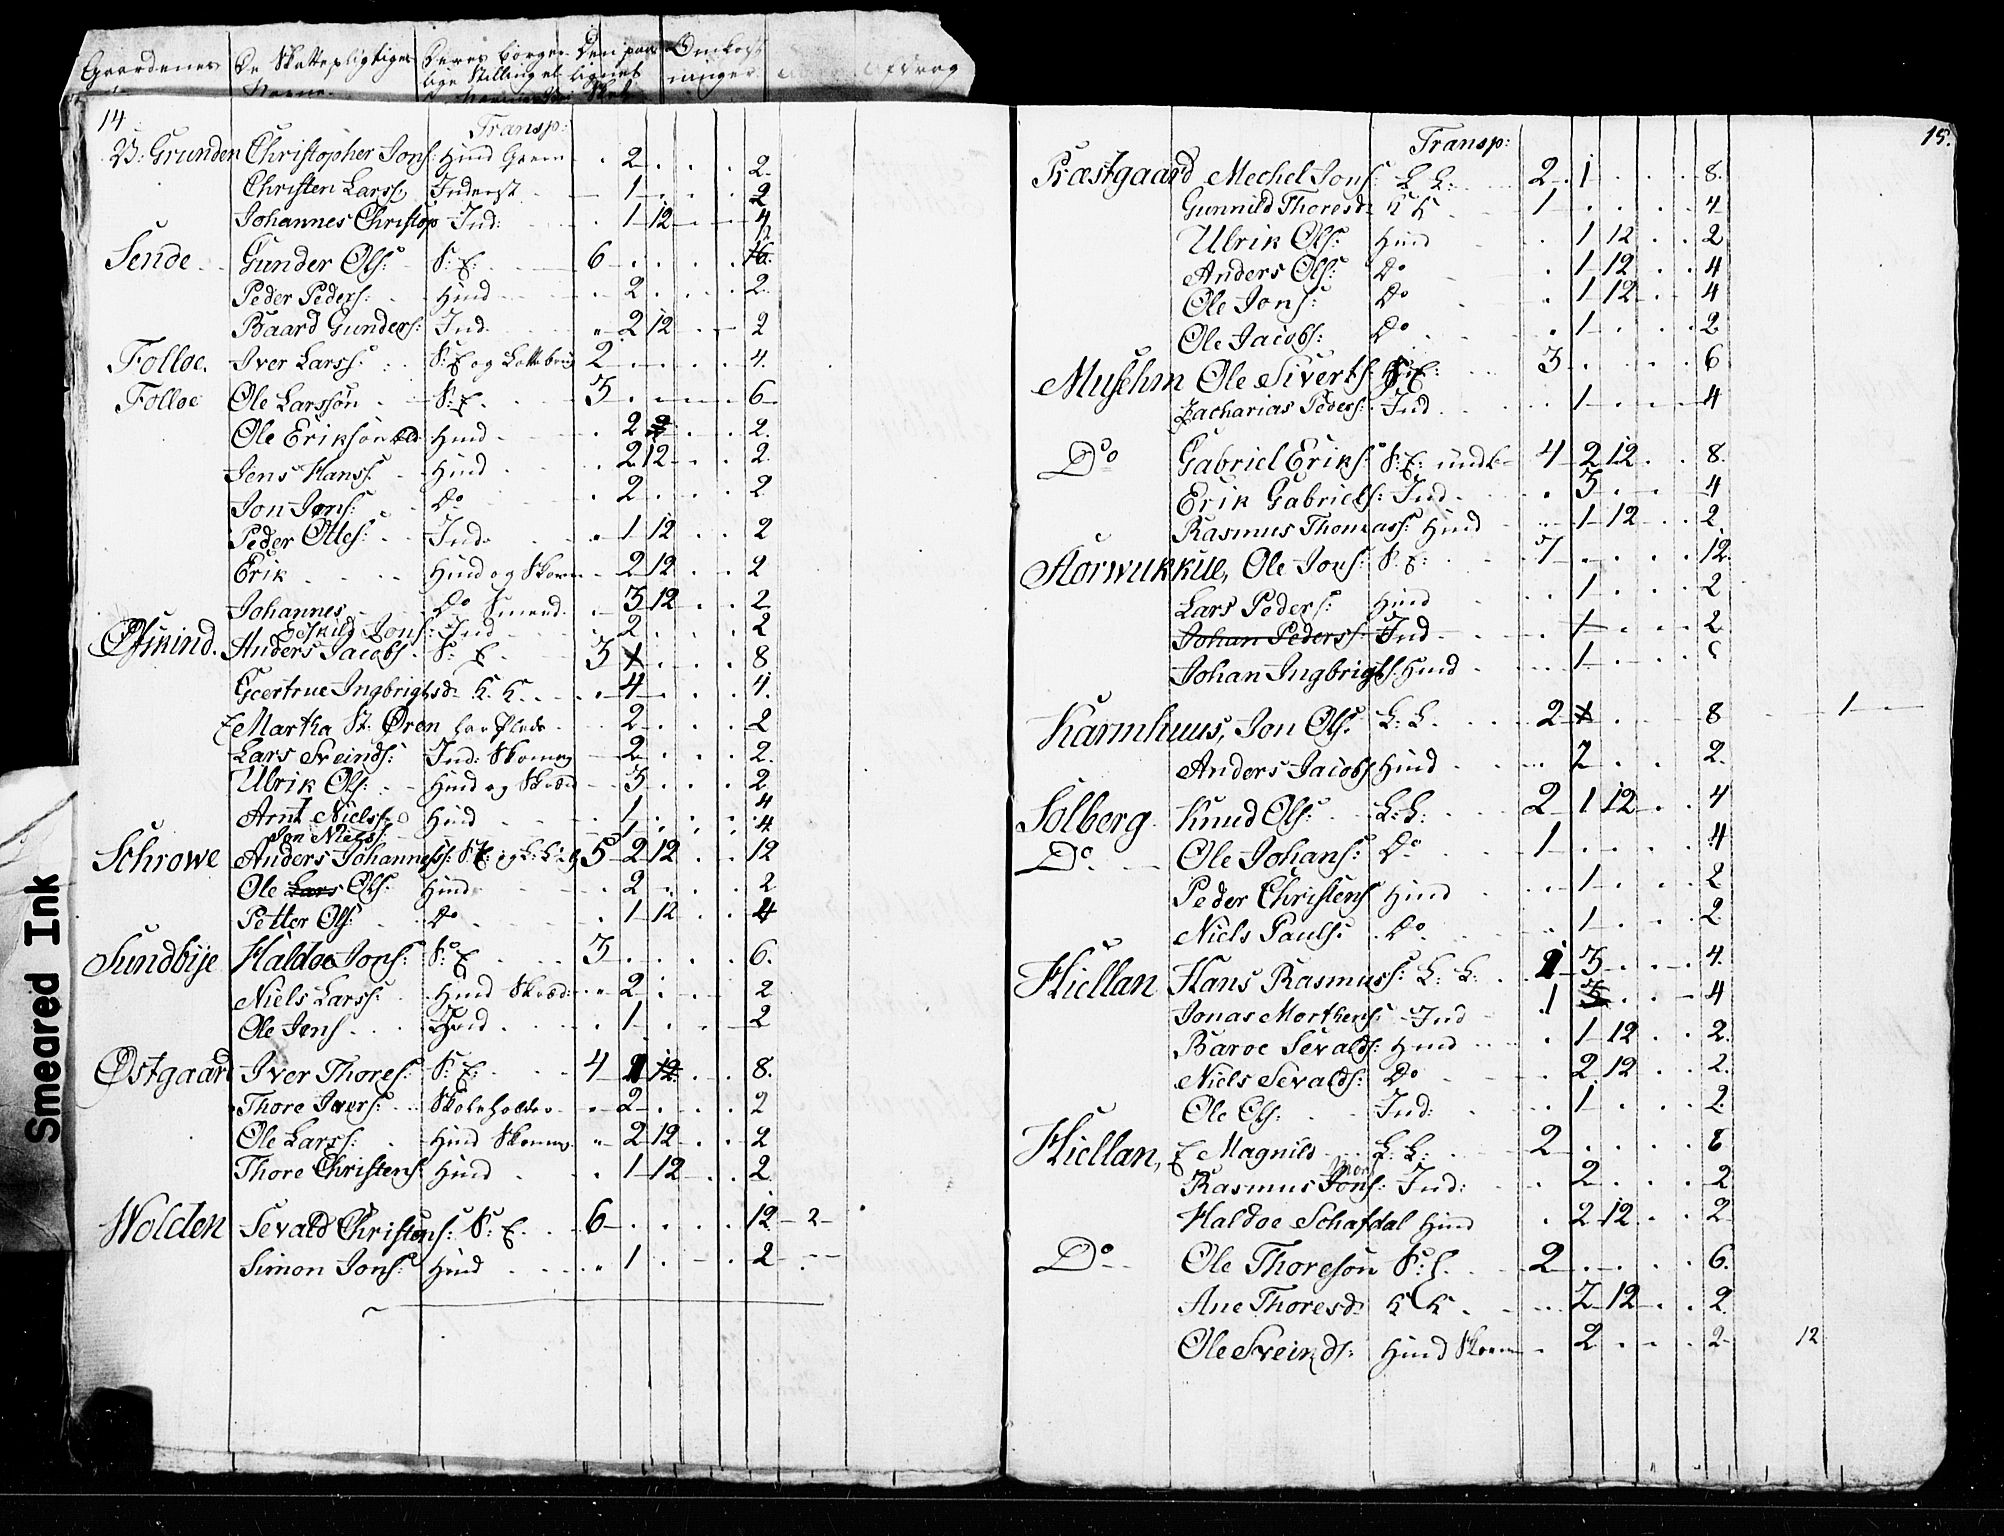 Gaardenes De Skattepligtiges Deres borger- Den paa- Omkost-
Navne lige Stilling el lignet ninger Afdrag
Skat
14
Transp:
V: Grunden Christopher Jons: Huusd Green 2 2
Christen Larss: Inderst 1 2
Johannes Christop Ind: 1 12 4
Sende Gunder Ols: S: E: 6 16
Peder Peders: Huusd 2 2
Baard Gunders: Ind 2 12 2
Folloe. Iver Larss: S: E og 2 4
Folloe Ole Larssøn S: E. 3 6
Ole Eriksøn Huusd 2 2
Jens Hans: Huusd 2 12 2
Jon Jons: Do 2 2
Peder Olles: Ind. 1 12 2
Erik Huusd og 2 12 2
Johannes Do Smeed 3 12 2
Eskild Jons: Ind 2 2
Øfskind. Anders Jacobs. S: E. 3 1 8
Geertrue Ingbrigtsd: K. K. 4 4.
E Martha St. Øren 2 2
Lars Sveinds: Ind: Skomag 2 2
Ulrik Ols: Huusd og Skræd 3 2
Arnt Nielss: Huusd 1 4
Jon Nielss: 1 4
Schrowe Anders Johanness: S: E: og L: L: 5 2 12 12
Ole Lars Ols: Huusd 2 2
Petter Ols: Do 1 12 4
Sundbije Haldoe Jons: S: E 3 6.
Niels Larss: Huusd Skræd: 2 2
Ole Jens Huusd 1 2
Østgaard Iver Thores: S: E: 4 1 12 8.
Thore Ivers: Skoleholder 2 2
Ole Larss: Huusd Skomag 2 12 2
Thore Christens: Huusd 1 12 2.
Wolden Sevald Christens: S: E. 6 12 2
Simon Jons: Huusd 1 2
15.
Transp:
Præstgaard Mechel Jons: L L: 2 1 8
Gunnild Thoresd: K K 1 4
Ulrik Ols: Huusd 1 12 2
Anders Ols: Do 1 12 4
Ole Jons: Do 1 12 4
Ole Jacobs: Do 1 2
Musehm Ole Siverts: S: E: 3 6
Zacharias Peders: Ind 1 4
Do Gabriel Eriks: S: E: 4 2 12 8.
Erik Gabriels: Ind 3 4
Rasmus Thomass: Huusd 1 12 2.
Storwukkue, Ole Jons: S: E: 7 12.
Lars Peders: Huusd 1 2
Johan Peders: Ind 1 2
Johan Ingbrigts: Huusd 1
Karmhuus, Jon Ols: L: L. 2 1 8 1
Anders Jacobs Huusd 2 2.
Solberg Knud Ols: L: L: 2 1 12 4
Do Ole Johans: Do 1 4
Peder Christens Huusd 1 2
Niels Pauls: Do 1 2
Hiellan Hans Rasmuss: L: L: 1 3 4.
Jonas Morthens: Ind 1 3 4
Baroe Sevalds: Huusd 1 12 2.
Niels Sevalds: Do 2 12 2.
Ole Ols: Ind: 1 2.
Hiellan, E Magnild L: L: 2 8
Rasmus Jons: Ind: 2 2
Haldoe Schafdal Huusd 2 12 2
Do Ole Thoresøn S: E. 2 6.
Ane Thoresd: K K 2 12 2.
Ole Sveinds: Huusd Skom 2 2 12
Smeared Ink